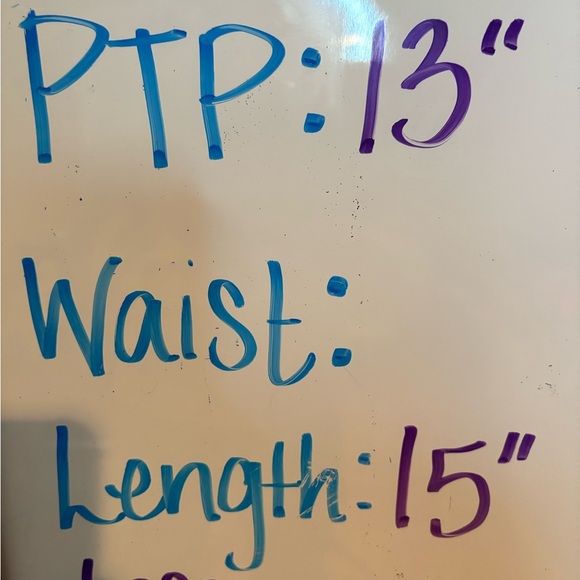 PTP: 13"
Waist:
Length: 15"